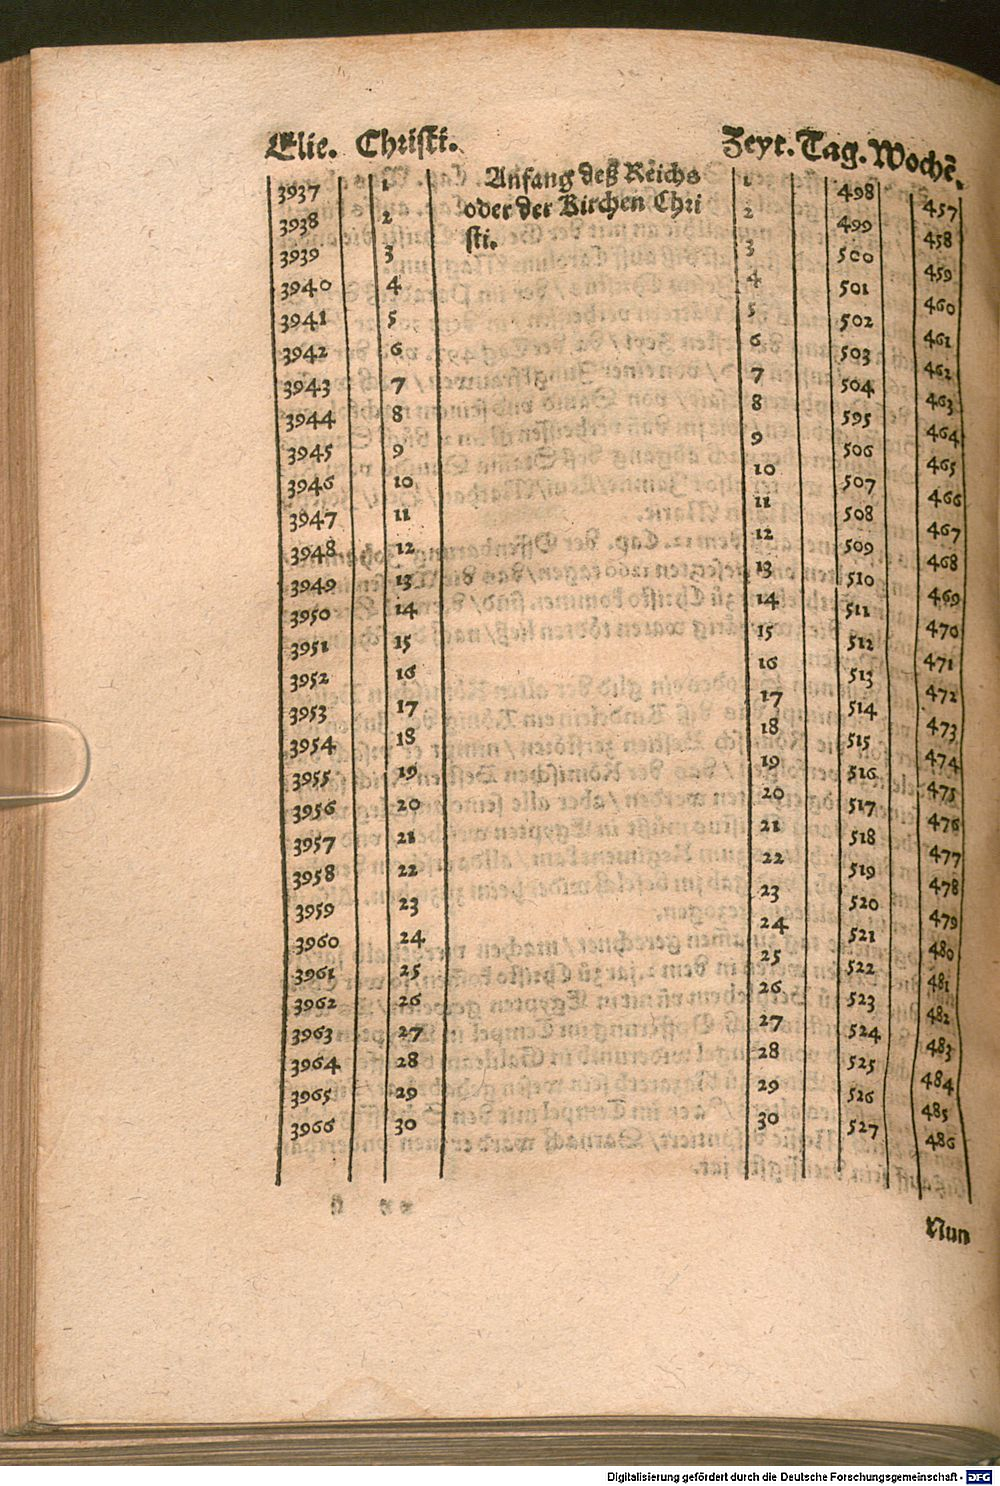 Elie. Christi. Zeyt. Tag. Wochē.
3937 1 Anfang deß Reichs 1 498 457
3938 2 oder der Kirchen Chri 2 499 458
3939 3 sti. 3 500 459
3940 4 4 501 460
3941 5 5 502 461
3942 6 6 503 462
3943 7 7 504 463
3944 8 8 595 464
3945 9 9 506 465
3946 10 10 507 466
3947 11 11 508 467
3948 12 12 509 468
3949 13 13 510 469
3950 14 14 511 470
3951 15 15 512 471
3952 16 16 513 472
3953 17 17 514 473
3954 18 18 515 474
3955 19 19 516 475
3956 20 20 517 476
3957 21 21 518 477
3958 22 22 519 478
3959 23 23 520 479
3960 24 24 521 480
3961 25 25 522 481
3962 26 26 523 482
3963 27 27 524 483
3964 28 28 525 484
3965 29 29 526 485
3966 30 30 527 486
Nun
Digitalisierung gefördert durch die Deutsche Forschungsgemeinschaft - DFG